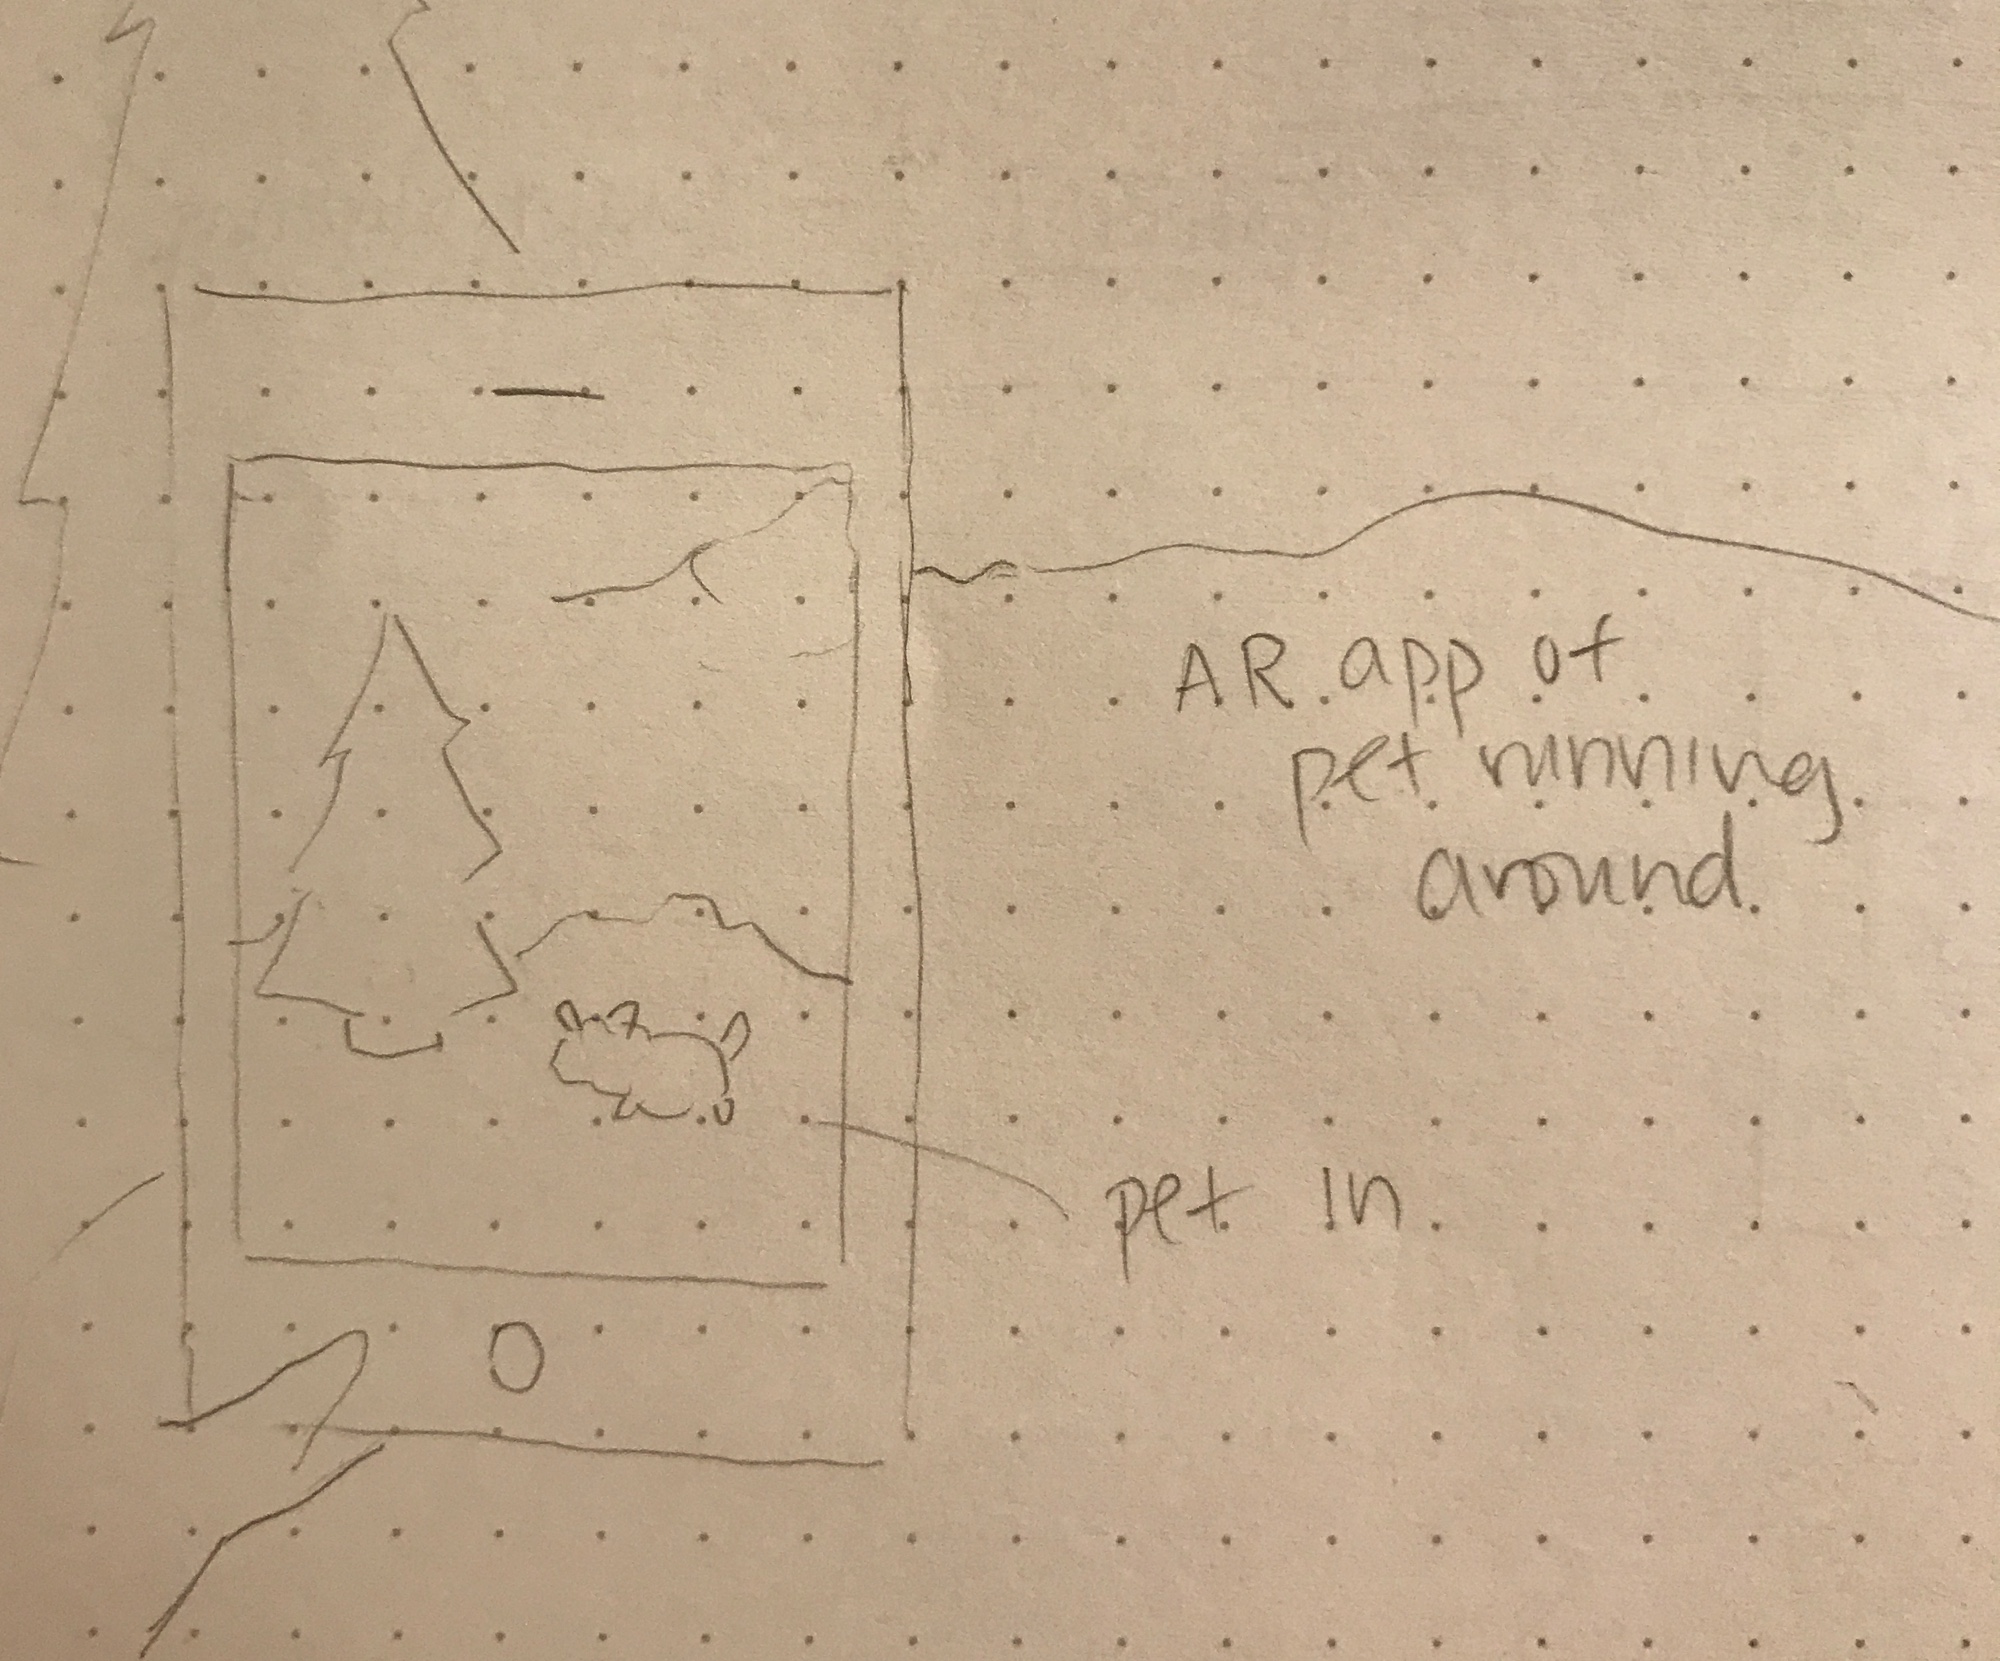 AR app of
pet running
around
pet in